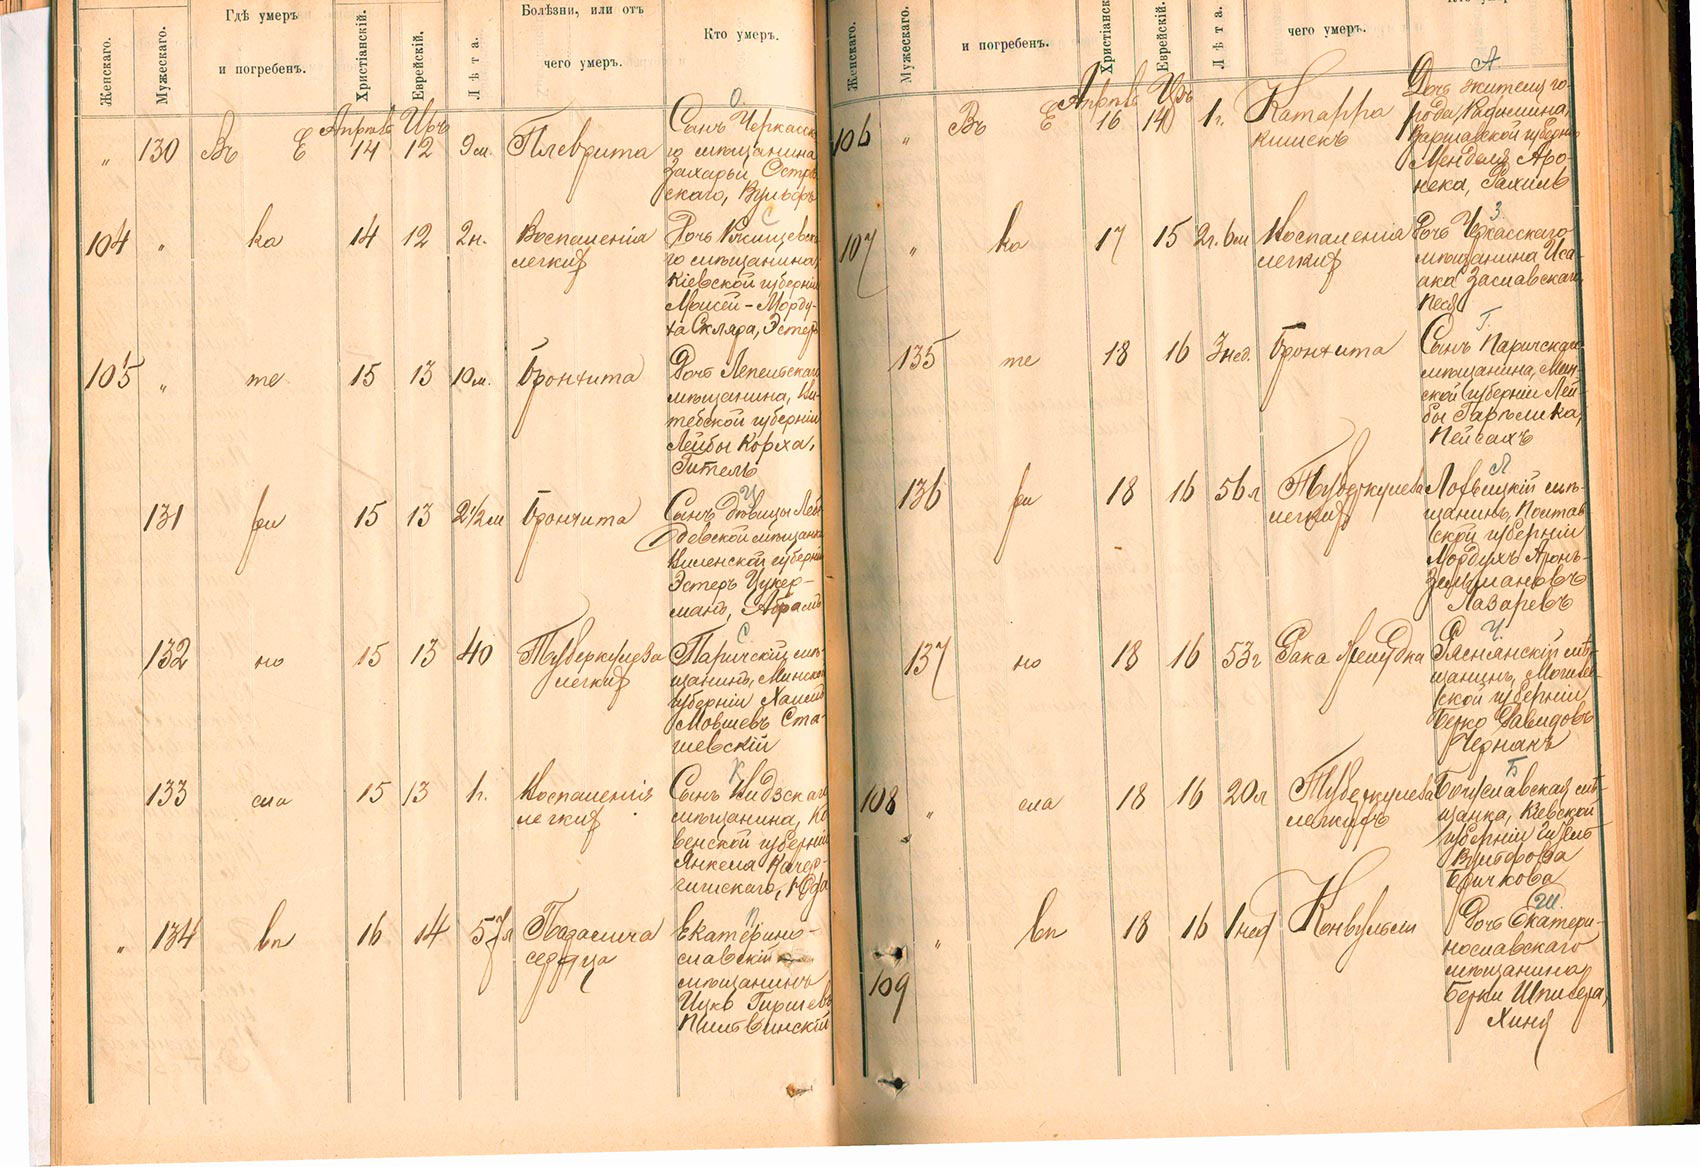 Женскаго.
Мужескаго.
Гдѣ умеръ
и погребенъ.
Христіанскій.
Еврейскій.
Лѣта.
Болѣзни, или отъ
чего умеръ.
Кто умеръ.
О.
" 130 Въ Е Апрѣль Иръ 14 12 9 м. Плеврита
Сынъ Черкасск
го мѣщанина
Захарьи Остр
скаго, Вульфъ
С
104 " ка 14 12 2 н. Воспаленія
легкихъ
Дочь
го мѣщанина
Кіевской губерніи
Мойсей-Морду-
ха Скляра, Эстеръ
105 " те 15 13 10 м. Бронхита
Дочь Лепельскаго
мѣщанина, Ви-
тебской губерніи
Лейбы Корха,
Гитель
Ц
131 ри 15 13 2 1/2 м Бронхита
Сынъ дѣвицы Леб
девской мѣщанки
Виленской губерніи
Эстеръ Цукер-
манъ, Абрамъ
С
132 но 15 13 40 Туберкулеза
легкихъ
Паричскій мѣ-
щанинъ, Минской
губерніи Хаимъ
Мовшевъ Ста-
шевскій
К
133 сла 15 13 1 г. Воспаленія
легкихъ
Сынъ Видзскаго
мѣщанина, Ко
венской губерніи
Янкеля Качер-
гинскаго, Юда
П
" 134 вп 16 14 57 л Паралича
сердца
Екатерино-
славскій
мѣщанинъ
Ицко Гиршевъ
Женскаго.
Мужескаго.
и погребенъ.
Христіанск
Еврейскій.
Лѣта.
чего умеръ.
А.
106 " Въ Е Апрѣль Иръ 16 14 1 г. Катарра
кишекъ
Дочь жителя го-
рода Радимина,
Варшавской губерніи
Менделя Аро-
нека, Рахиль
З.
107 " ка 17 15 2 г. 6 м Воспаленія
легкихъ
Дочь Черкасскаго
мѣщанина Иса-
ака Заславскаго
Песя
Г.
135 те 18 16 3 нед. Бронхита
Сынъ Паричскаго
мѣщанина, Мин-
ской губерніи Лей-
бы
Пейсахъ
Л
136 ри 18 16 56 л Туберкулеза
легкихъ
Лохвицкій мѣ-
щанинъ, Полтав
ской губерніи
Мордухъ Аронъ-
Зельмановъ
Лазаревъ
Ч.
137 но 18 16 53 г Рака желудка
мѣ-
щанинъ, Могилев-
ской губерніи
Берко Давидовъ
Чернякъ
Б
108 " сла 18 16 20 л Туберкулеза
легкихъ
Богуславская мѣ-
щанка, Кіевской
губерніи
Вульфова
Бричкова
Ш.
109 " вп 18 16 1 нед Конвульсіи
Дочь Екатери-
нославскаго
мѣщанина
Берки Шпилера,
Хиня